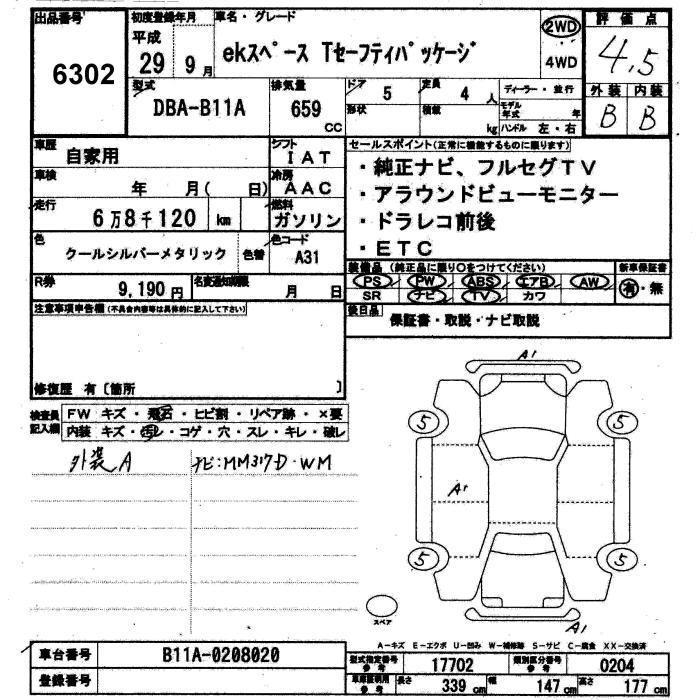 出品番号
6302
初度登録年月
平成
29 9月
車名・グレード
ekスペース Tセーフティパッケージ
2WD
4WD
評価点
4.5
外装 内装
B B
型式
DBA-B11A
排気量
659
CC
ドア
5
定員
4 人
形状
積載
kg
ディーラー・並行
モデル年式 年
ハンドル 左・右
車歴
自家用
シフト
IAT
車検
年 月( 日)
冷房
AAC
走行
6万8千120 km
燃料
ガソリン
色
クールシルバーメタリック
色替
色コード
A31
R券
9,190円
名変通知期限
月 日
セールスポイント(正常に機能するものに限ります)
・純正ナビ、フルセグTV
・アラウンドビューモニター
・ドラレコ前後
・ETC
装備品 (純正品に限り○をつけてください)
PS PW ABS エアB AW
SR ナビ TV カワ
新車保証書
有・無
後日品
保証書・取説・ナビ取説
注意事項申告欄(不具合内容等は具体的に記入して下さい)
修復歴 有〔箇所 〕
検査員記入欄
FW キズ・飛石・ヒビ割・リペア跡・×要
内装 キズ・汚レ・コゲ・穴・スレ・キレ・破レ
外装A
ナビ:MM317D-WM
A1
5
5
A1
5
5
スペア
A1
A-キズ E-エクボ U-凹み W-補修跡 S-サビ C-腐食 XX-交換済
車台番号
B11A-0208020
登録番号
型式指定番号
参考
17702
類別区分番号
参考
0204
車庫証明用
参考
長さ
339 cm
幅
147 cm
高さ
177 cm